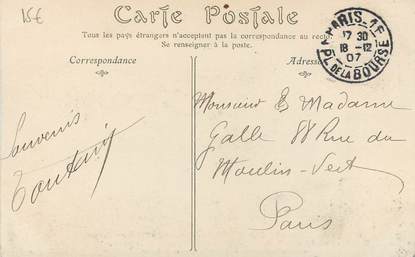 15€
Carte Postale
Tous les pays étrangers n'acceptent pas la correspondance au recto.
Se renseigner à la poste.
Correspondance
Adresse
PARIS
17 30
18 - 12
07
PL. DE LA BOURSE
Souvenirs
Monsieur & Madame
Galle 88 Rue du
Moulin-Vert
Paris